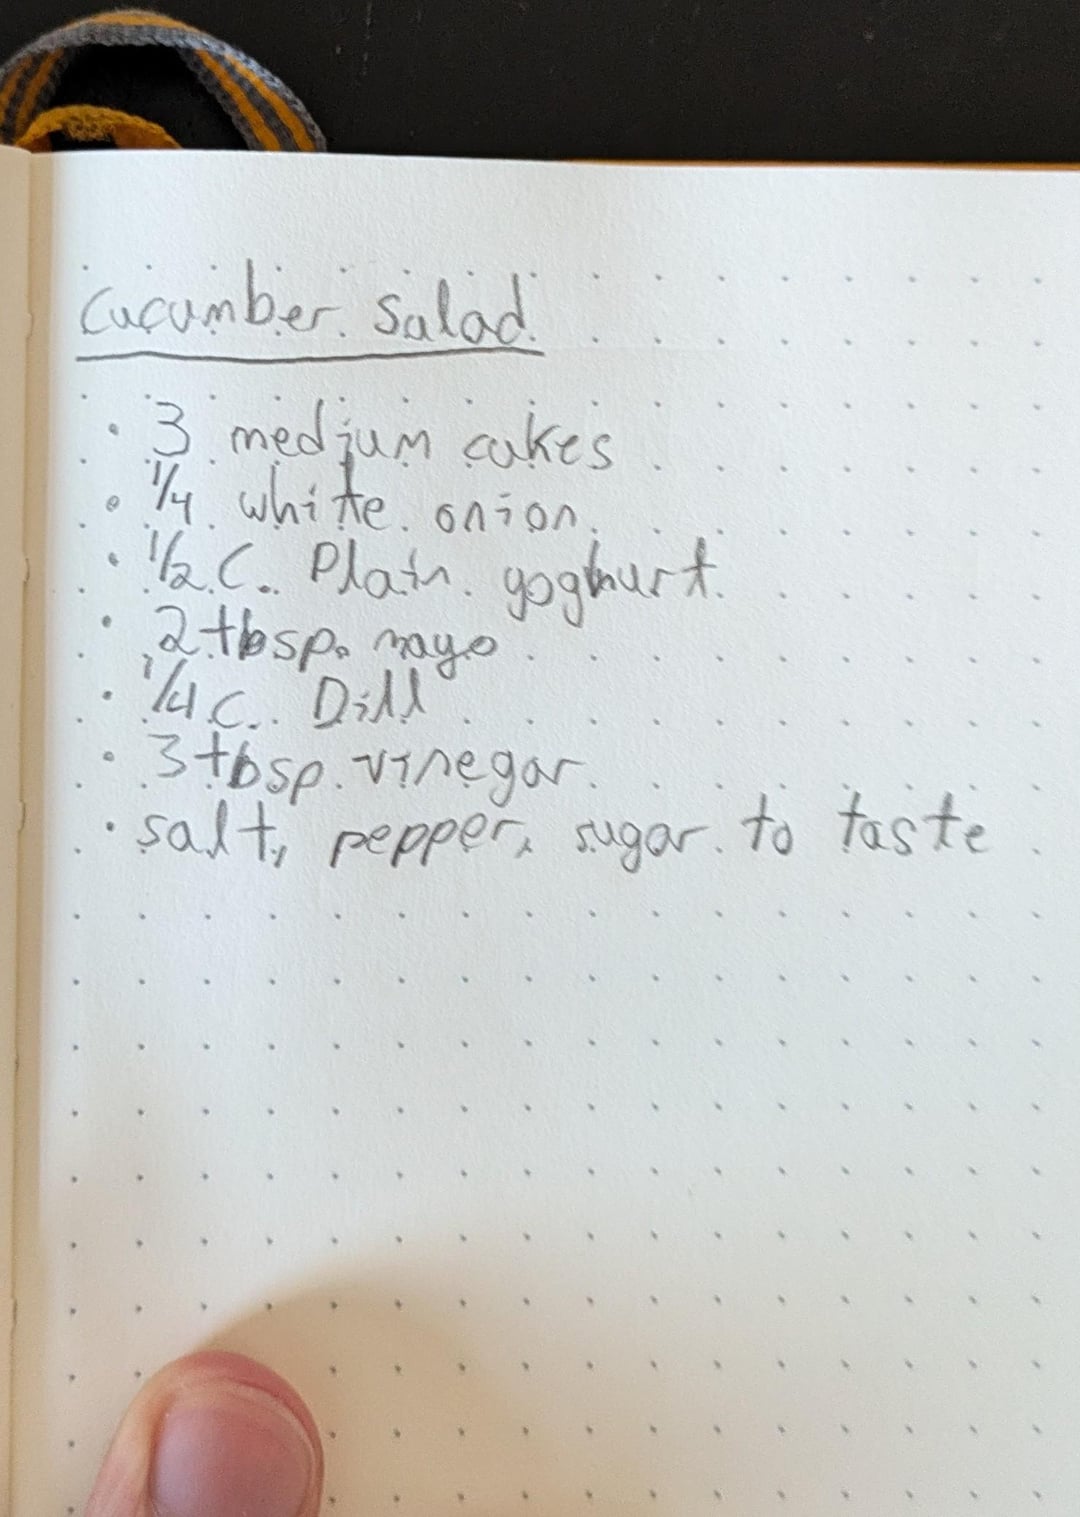 Cucumber Salad
• 3 medium cukes
• 1/4 white onion
• 1/2 C. Plain yoghurt
• 2 tbsp. mayo
• 1/4 C. Dill
• 3 tbsp. vinegar
• salt, pepper, sugar to taste